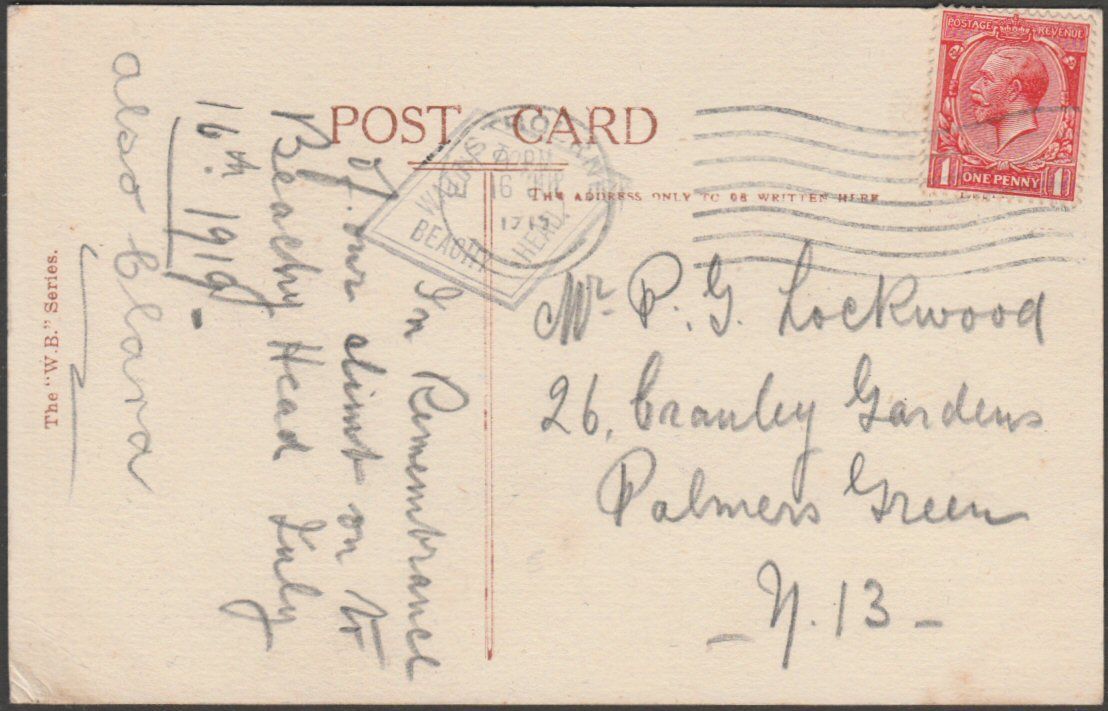 POSTAGE REVENUE
1 ONE PENNY 1
POST CARD
THE ADDRESS ONLY TO BE WRITTEN HERE
EASTBOURNE
16 JUL
WATCH
BEACHY HEAD.
In Remembrance
of our climb on to
Beachy Head July
16th. 1919.
also Clara
Mr P. G. Lockwood
26, Cranley Gardens
Palmers Green
_ N. 13 _
The "W.B." Series.